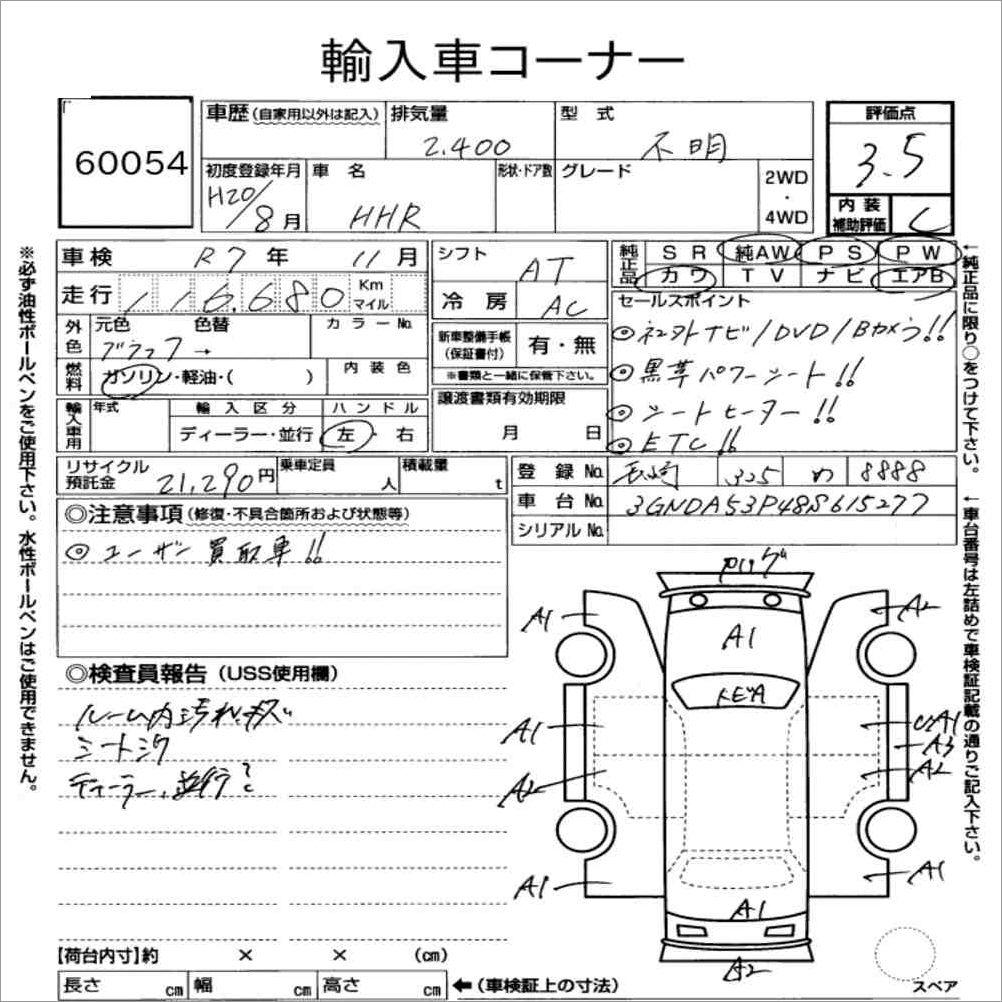 輸入車コーナー
60054
車歴 (自家用以外は記入) 排気量 型式 評価点
2.400 不明 3.5
初度登録年月 車名 形状・ドア数 グレード 2WD・4WD
H20/8月 HHR
内装補助評価 C
車検 R7年 11月 シフト AT 純正品 SR 純AW PS PW
カワ TV ナビ エアB
走行 116.680 Km マイル 冷房 AC セールスポイント
外色 元色 色替 カラーNo. 新車整備手帳(保証書付) 有・無
ブラック→ ※書類と一緒に保管下さい。
◎社外ナビ/DVD/Bカメラ!!
◎黒革パワーシート!!
◎シートヒーター!!
◎ETC!!
燃料 ガソリン・軽油・( ) 内装色
輸入車用 年式 輸入区分 ハンドル 譲渡書類有効期限
ディーラー・並行 左・右 月 日
リサイクル預託金 21,290円 乗車定員 人 積載量 t
登録No. 長崎 325 め 8888
車台No. 3GNDA53P48S615277
シリアルNo.
◎注意事項 (修復・不具合箇所および状態等)
◎ユーザー買取車!!
◎検査員報告 (USS使用欄)
ルーム内汚れキズ
シートシワ
ディーラー、並行?
A1
A1
A2
A1
A1
A1
A2
A2
A1
A3
A2
A1
【荷台内寸】約 × × (cm)
長さ cm 幅 cm 高さ cm ←(車検証上の寸法)
スペア
※必ず油性ボールペンをご使用下さい。水性ボールペンはご使用できません。
←純正品に限り○をつけて下さい。
←車台番号は左詰めで車検証記載の通りご記入下さい。